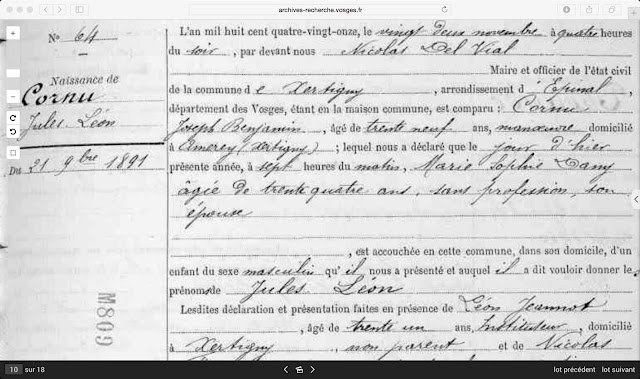 archives-recherche.vosges.fr
L'an mil huit cent quatre-vingt-onze, le vingt deux novembre à quatre heures
Nº 64
du soir, par devant nous Nicolas Del Vial
Maire et officier de l'état civil
Naissance de
de la commune de Xertigny, arrondissement d'Épinal,
Cornu
département des Vosges, étant en la maison commune, est comparu: Cornu
Jules Léon
Joseph Benjamin, âgé de trente neuf ans, manœuvre domicilié
à Amerey (Xertigny); lequel nous a déclaré que le jour d'hier
Du 21 9bre 1891
présente année, à sept heures du matin, Marie Sophie Dany
âgée de trente quatre ans, sans profession, son
épouse
, est accouchée en cette commune, dans son domicile, d'un
enfant du sexe masculin qu'il nous a présenté et auquel il a dit vouloir donner le
prénoms de Jules Léon
Lesdites déclaration et présentation faites en présence de Léon Jeannot
, âgé de trente un ans, Instituteur, domicilié
à Xertigny, non parent et de Nicolas
M809
10 sur 18
lot précédent lot suivant